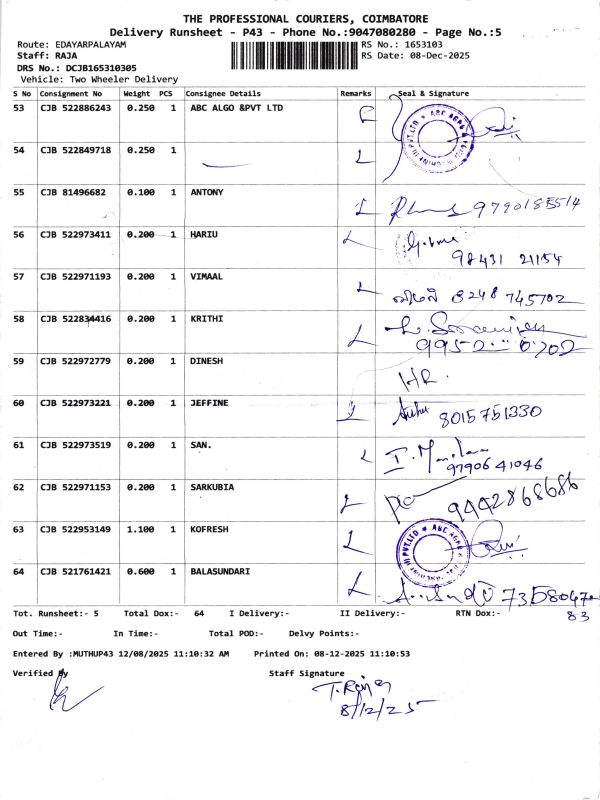 THE PROFESSIONAL COURIERS, COIMBATORE
Delivery Runsheet - P43 - Phone No.:9047080280 - Page No.:5
Route: EDAYARPALAYAM RS No.: 1653103
Staff: RAJA RS Date: 08-Dec-2025
DRS No.: DCJB165310305
Vehicle: Two Wheeler Delivery
S No Consignment No Weight PCS Consignee Details Remarks Seal & Signature
53 CJB 522886243 0.250 1 ABC ALGO &PVT LTD
54 CJB 522849718 0.250 1
55 CJB 81496682 0.100 1 ANTONY 9790185514
56 CJB 522973411 0.200 1 HARIU
98431 21154
57 CJB 522971193 0.200 1 VIMAAL 8248 745702
58 CJB 522834416 0.200 1 KRITHI
59 CJB 522972779 0.200 1 DINESH
HR.
60 CJB 522973221 0.200 1 JEFFINE 8015751330
61 CJB 522973519 0.200 1 SAN.
9790641046
62 CJB 522971153 0.200 1 SARKUBIA 9442868686
63 CJB 522953149 1.100 1 KOFRESH
64 CJB 521761421 0.600 1 BALASUNDARI
83
Tot. Runsheet:- 5 Total Dox:- 64 I Delivery:- II Delivery:- RTN Dox:-
Out Time:- In Time:- Total POD:- Delvy Points:-
Entered By :MUTHUP43 12/08/2025 11:10:32 AM Printed On: 08-12-2025 11:10:53
Verified By Staff Signature
T. Raja
8/12/25